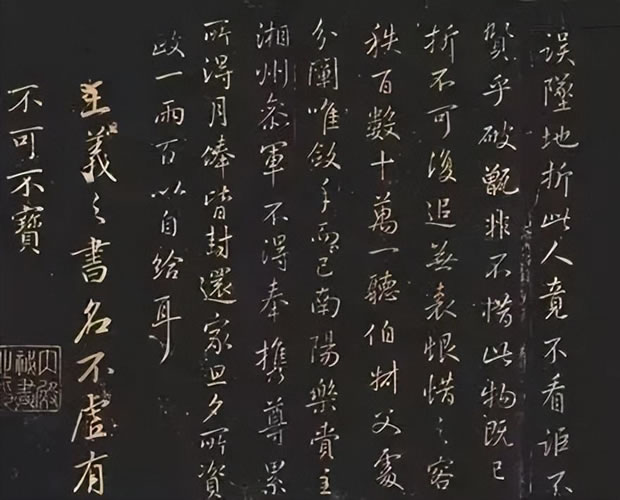 誤墜地折此人竟不看詎不
賢乎破甑非不惜此物既已
折不可復追無哀恨惜之容
秩百數十萬一聽伯叔父處
分唯斂手而已南陽樂賞主
湘州參軍不得奉攜尊累
所得月俸皆封還家旦夕所資
政一兩百以自給耳
王羲之書名不虛有
不可不寶
內殿秘書之印